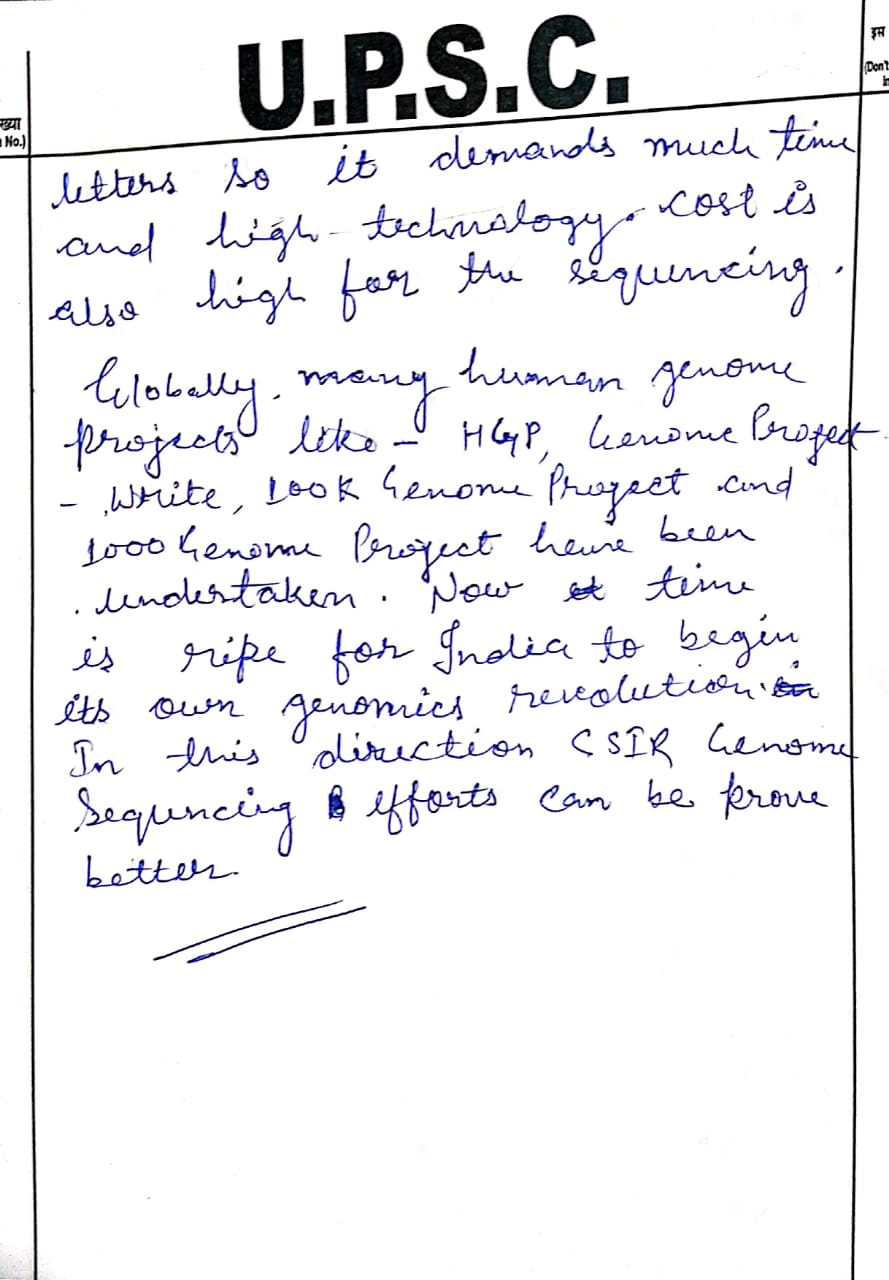 U.P.S.C.
ख्या
No.)
इस
(Don't
in
letters so it demands much time
and high-technology. cost is
also high for the sequencing.
Globally, many human genome
projects like – HGP, Genome Project
- Write, 100K Genome Project and
1000 Genome Project have been
undertaken. Now time
is ripe for India to begin
its own genomics revolution.
In this direction CSIR Genome
Sequncing efforts can be prove
better.